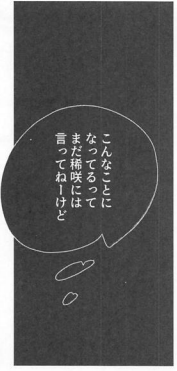 こんなことに
なってるって
まだ稀咲には
言ってねーけど